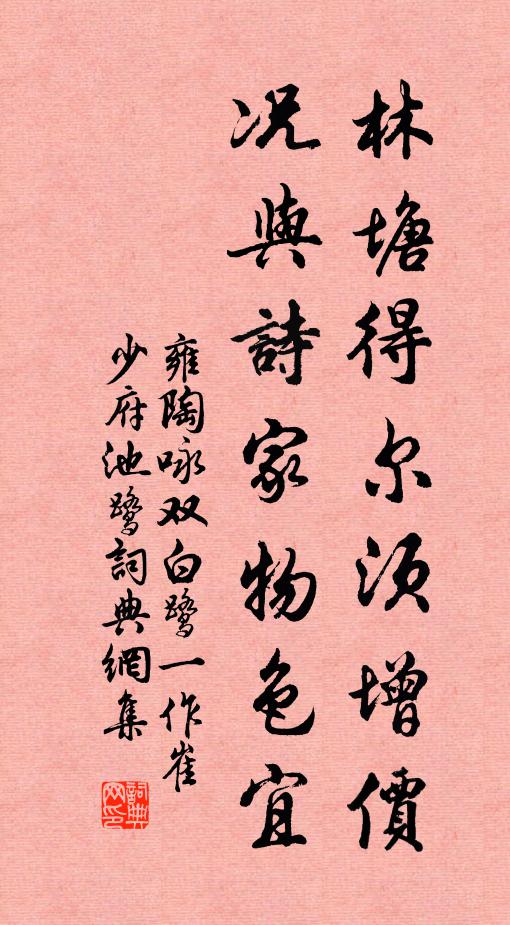 林塘得尔须增價
况與詩家物色宜
雍陶咏双白鹭一作崔
少府池鹭詞典網集
詞典网印